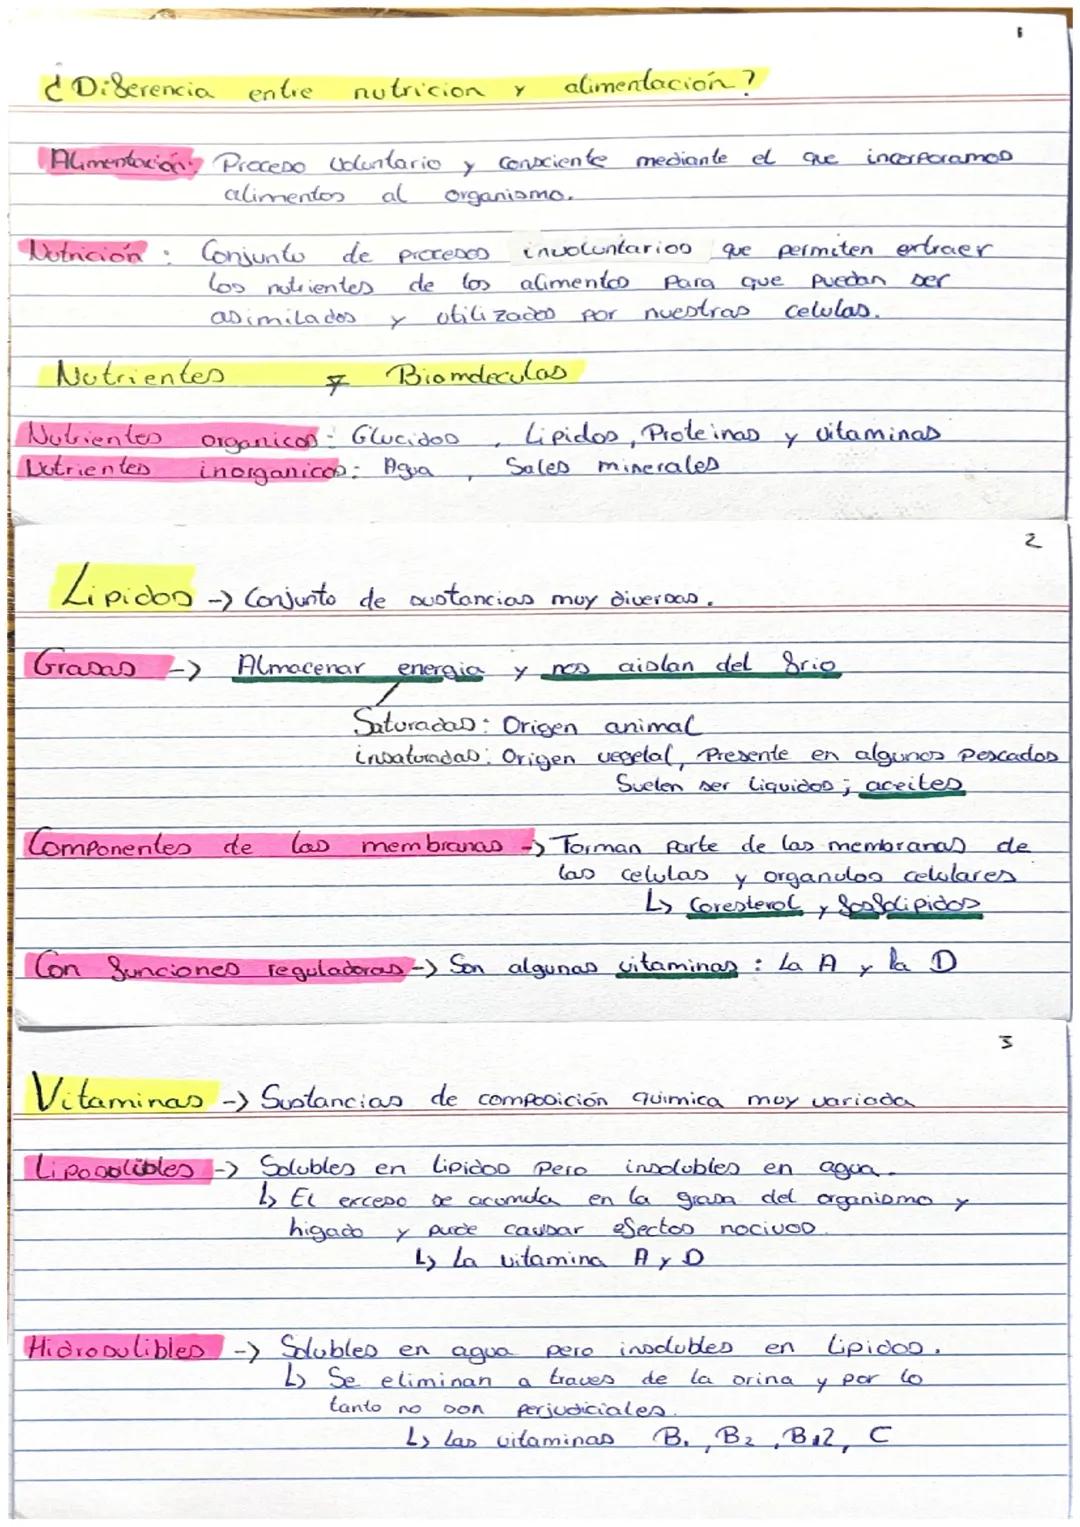 1
¿Diferencia entre nutricion y alimentación?
Alimentación: Proceso voluntario y consciente mediante el que incorporamos
alimentos al organismo.
Nutrición: Conjunto de procesos involuntarios que permiten extraer
los nutrientes de los alimentos para que puedan ser
asimilados y utilizados por nuestras celulas.
Nutrientes ≠ Biomoleculas
Nutrientes organicos: Glucidos, Lipidos, Proteinas y vitaminas
Nutrientes inorganicos: Agua, Sales minerales
2
Lipidos -> Conjunto de sustancias muy diversas.
Grasas -> Almacenar energia y nos aislan del frio
Saturadas: Origen animal
insaturadas: Origen vegetal, Presente en algunos pescados
Suelen ser liquidos; aceites
Componentes de las membranas -> Forman parte de las membranas de
las celulas y organulos celulares
↳ Coresterol y fosfolipidos
Con funciones reguladoras -> Son algunas vitaminas: La A y la D
3
Vitaminas -> Sustancias de composición quimica muy variada
Liposolibles -> Solubles en lipidos pero insolubles en agua.
↳ El exceso se acumula en la grasa del organismo y
higado y puede causar efectos nocivos.
↳ La vitamina A y D
Hidrosulibles -> Solubles en agua pero insolubles en lipidos.
↳ Se eliminan a traves de la orina y por lo
tanto no son perjudiciales.
↳ las vitaminas B1, B2, B12, C